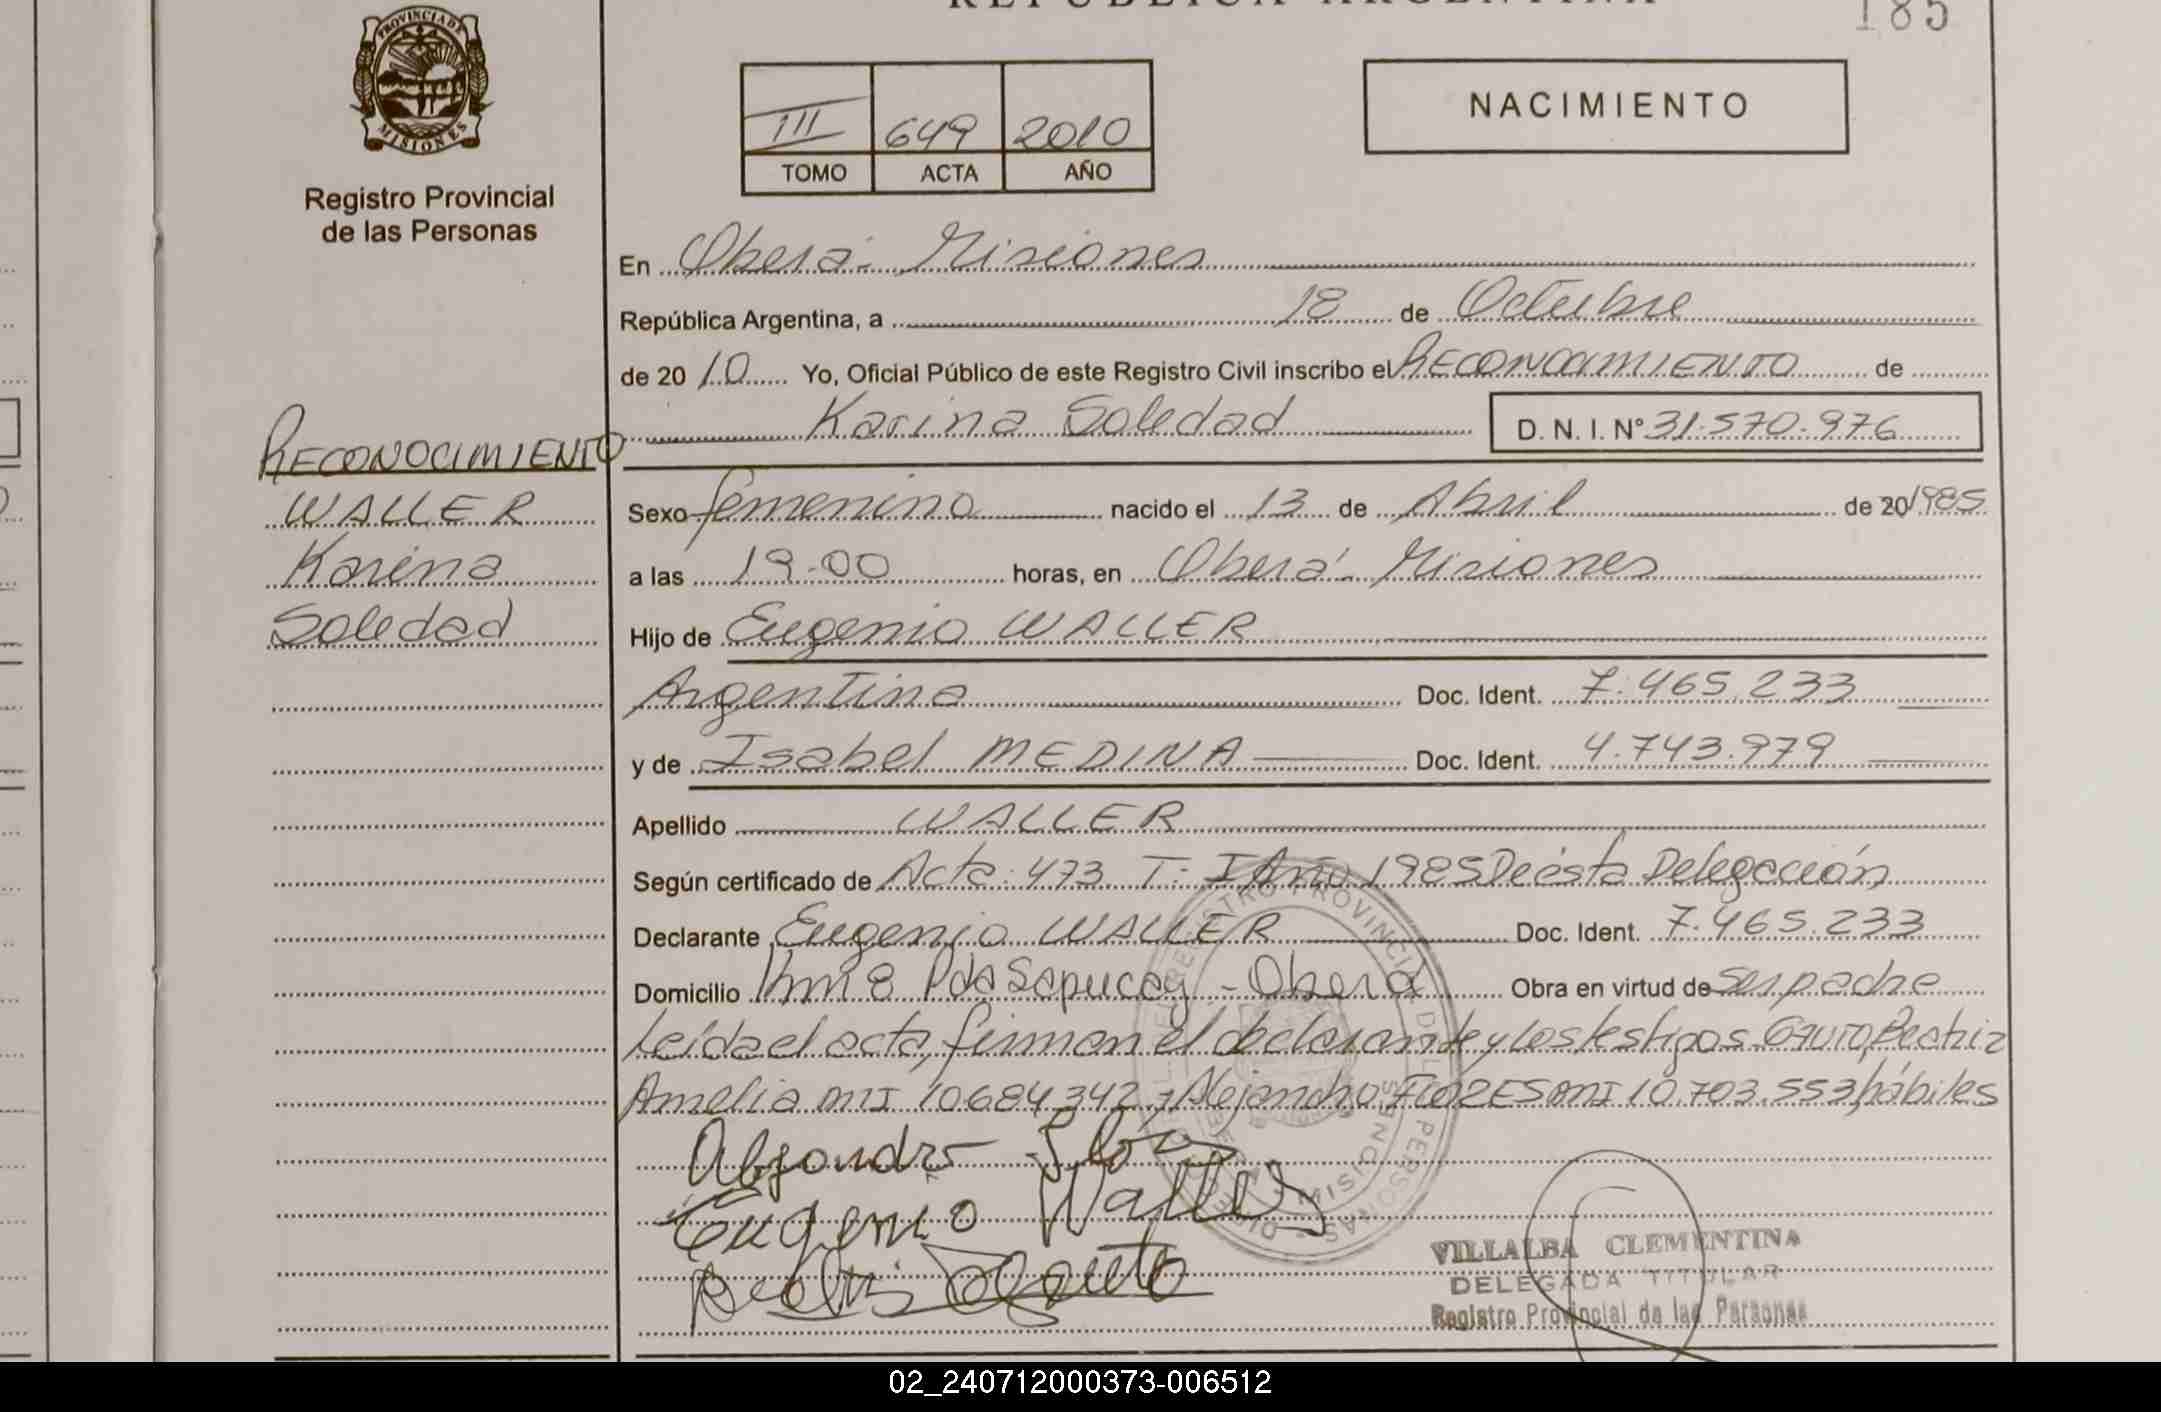 REPUBLICA ARGENTINA
185
PROVINCIA DE MISIONES
Registro Provincial
de las Personas
III 649 2010
TOMO ACTA AÑO
NACIMIENTO
En Oberá - Misiones
República Argentina, a 18 de Octubre
de 2010 Yo, Oficial Público de este Registro Civil inscribo el RECONOCIMIENTO de
Karina Soledad D. N. I. Nº 31.570.976
RECONOCIMIENTO
WALLER
Karina
Soledad
Sexo femenino nacido el 13 de Abril de 20 1985
a las 19.00 horas, en Oberá - Misiones
Hijo de Eugenio WALLER
Argentina Doc. Ident. 7.465.233
y de Isabel MEDINA Doc. Ident. 4.743.979
Apellido WALLER
Según certificado de Acta: 473 T: I Año 1985 De ésta Delegación
Declarante Eugenio WALLER Doc. Ident. 7.465.233
Domicilio Km 8 Pda Sapucay - Oberá Obra en virtud de ser padre
Leída el acta, firman el declarante y los testigos Beatriz
Amelia MI 10684342 y Alejandro FLORES MI 10.703.553 hábiles
Eugenio Waller
VILLALBA CLEMENTINA
DELEGADA TITULAR
Registro Provincial de las Personas
02_240712000373-006512